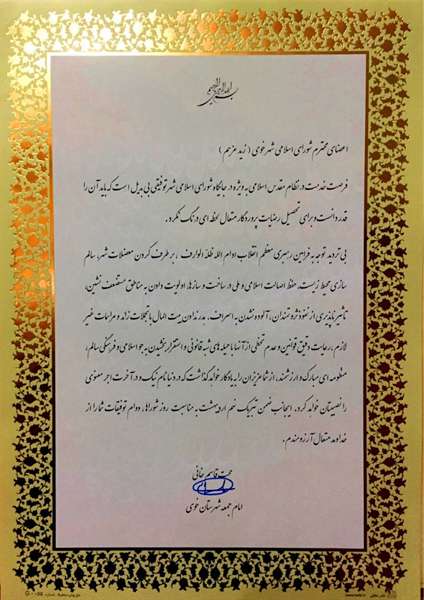 بسم الله الرحمن الرحیم
اعضای محترم شورای اسلامی شهر خوی ( زید عزهم )
فرصت خدمت در نظام مقدس اسلامی به ویژه در جایگاه شورای اسلامی شهر توفیقی بی بدیل است که باید آن را
قدر دانست و برای تحصیل رضایت پروردگار متعال لحظه ای درنگ نکرد.
بی تردید توجه به فرامین رهبری معظم انقلاب ادام الله ظله الوارف ، بر طرف کردن معضلات شهر، سالم
سازی محیط زیست، حفظ اصالت اسلامی و ملی در ساخت و سازها، اولویت دادن به مناطق مستضعف نشین،
تاثیر ناپذیری از نفوذ ثروتمندان، آلوده نشدن به اسراف، هدر ندادن بیت المال با تجملات زائد و مراسمات غیر
لازم ، رعایت دقیق قوانین و عدم تخطی از آنها با حیله های شبه قانونی و استقرار بخشیدن به جو اسلامی و فرهنگی سالم،
منظومه ای مبارک و ارزشمند، از شما عزیزان را به یادگار خواهد گذاشت که در دنیا نام نیک و در آخرت اجر معنوی
را نصیبتان خواهد کرد. اینجانب ضمن تبریک نهم اردیبهشت به مناسبت روز شوراها، دوام توفیقات شما را از
خداوند متعال آرزومندم.
حجت قاسم خانی
امام جمعه شهرستان خوی